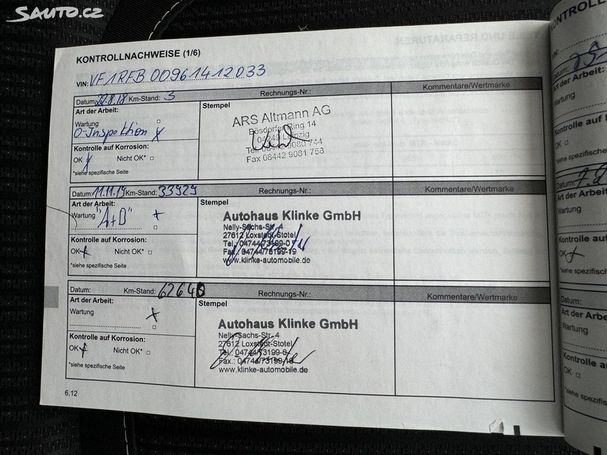 SAUTO.CZ
KONTROLLNACHWEISE (1/6)
VIN: VF1RFB00961412033
Datum: 22.11.18 Km-Stand: 3 Rechnungs-Nr.: Kommentare/Wertmarke
Art der Arbeit: Stempel
Wartung
0-Inspektion x
Kontrolle auf Korrosion:
OK Nicht OK* □
*siehe spezifische Seite
ARS Altmann AG
Ring 14
Fax 08442 9081 758
Datum: 11.11.19 Km-Stand: 33929 Rechnungs-Nr.: Kommentare/Wertmarke
Art der Arbeit: Stempel
Wartung "A+D" x
Kontrolle auf Korrosion:
OK x Nicht OK* □
*siehe spezifische Seite
Autohaus Klinke GmbH
Nelly-Sachs-Str. 4
27612 Loxstedt-Stotel
Tel.: 04744/73199-0
Fax.: 04744/73199-19
www.klinke-automobile.de
Datum: Km-Stand: 62640 Rechnungs-Nr.: Kommentare/Wertmarke
Art der Arbeit: Stempel
Wartung x
Kontrolle auf Korrosion:
OK x Nicht OK* □
*siehe spezifische Seite
Autohaus Klinke GmbH
Nelly-Sachs-Str. 4
27612 Loxstedt-Stotel
Tel.: 04744/73199-0
Fax.: 04744/73199-19
www.klinke-automobile.de
6.12
KONTROLL
Datum:
Art der Arbeit:
Wartung
Kontrolle auf
OK
*siehe spezifische
Datum:
Art der Arbeit:
Wartung
Kontrolle auf
OK
*siehe spezifische
Datum:
Art der Arbeit:
Wartung
Kontrolle
OK □
*siehe